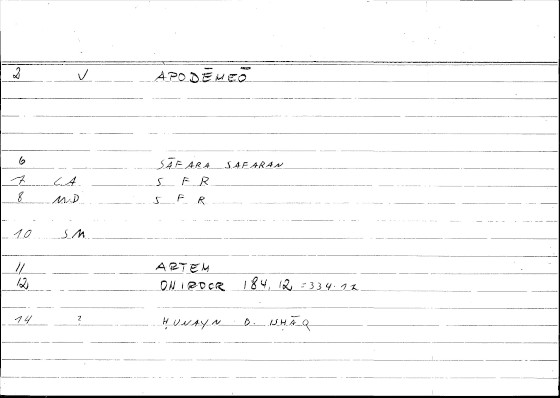 2 V APODĒMEŌ
6 SĀFARA SAFARAN
7 CA S F R
8 MD S F R
10 SM
11 ARTEM
12 ONIROCR 184,12 = 334.12
14 ? ḤUNAYN B. ISḤĀQ